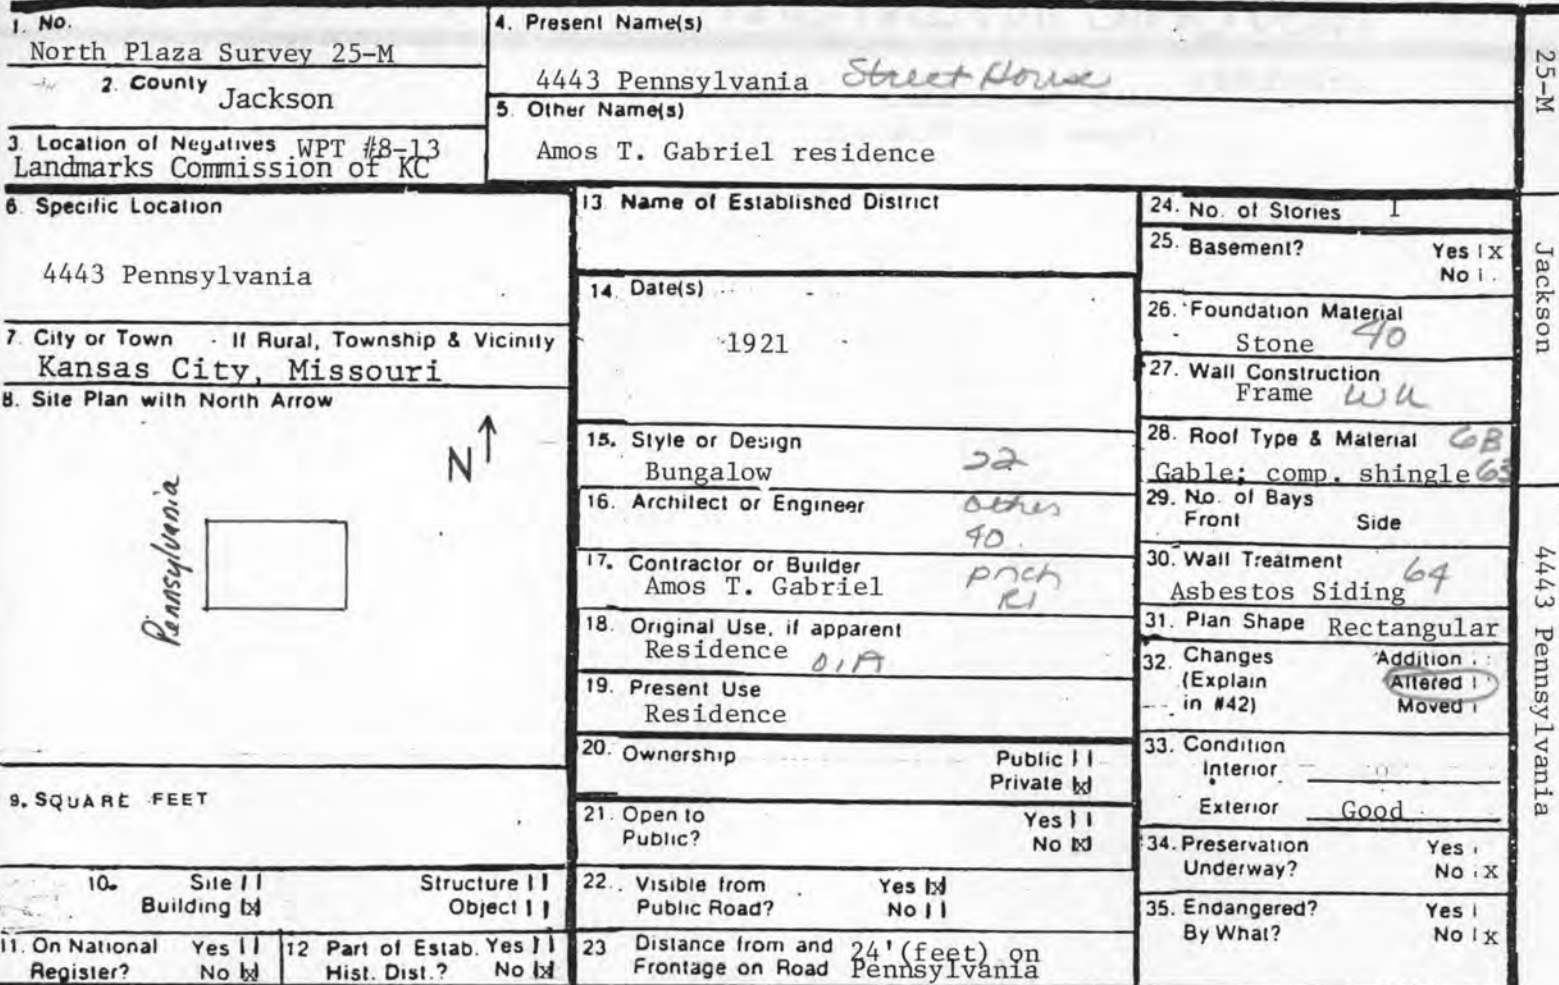 1. No.
North Plaza Survey 25-M
2. County Jackson
3. Location of Negatives WPT #8-13
Landmarks Commission of KC
4. Present Name(s)
4443 Pennsylvania Street House
5. Other Name(s)
Amos T. Gabriel residence
6. Specific Location
4443 Pennsylvania
7. City or Town If Rural, Township & Vicinity
Kansas City, Missouri
8. Site Plan with North Arrow
N
Pennsylvania
9. SQUARE FEET
10. Site Structure
Building [x] Object
11. On National Yes
Register? No [x]
12 Part of Estab. Yes
Hist. Dist.? No [x]
13. Name of Established District
14. Date(s)
1921
15. Style or Design
Bungalow 22
16. Architect or Engineer other
40
17. Contractor or Builder
Amos T. Gabriel
18. Original Use, if apparent
Residence 01A
19. Present Use
Residence
20. Ownership Public
Private [x]
21. Open to Yes
Public? No [x]
22. Visible from Yes [x]
Public Road? No
23 Distance from and 24' (feet) on
Frontage on Road Pennsylvania
24. No. of Stories 1
25. Basement? Yes x
No
26. Foundation Material
Stone 40
27. Wall Construction
Frame
28. Roof Type & Material 6B
Gable; comp. shingle 63
29. No. of Bays
Front Side
30. Wall Treatment 64
Asbestos Siding
31. Plan Shape Rectangular
32. Changes Addition
(Explain Altered
in #42) Moved
33. Condition
Interior
Exterior Good
34. Preservation Yes
Underway? No x
35. Endangered? Yes
By What? No x
25-M
Jackson
4443 Pennsylvania